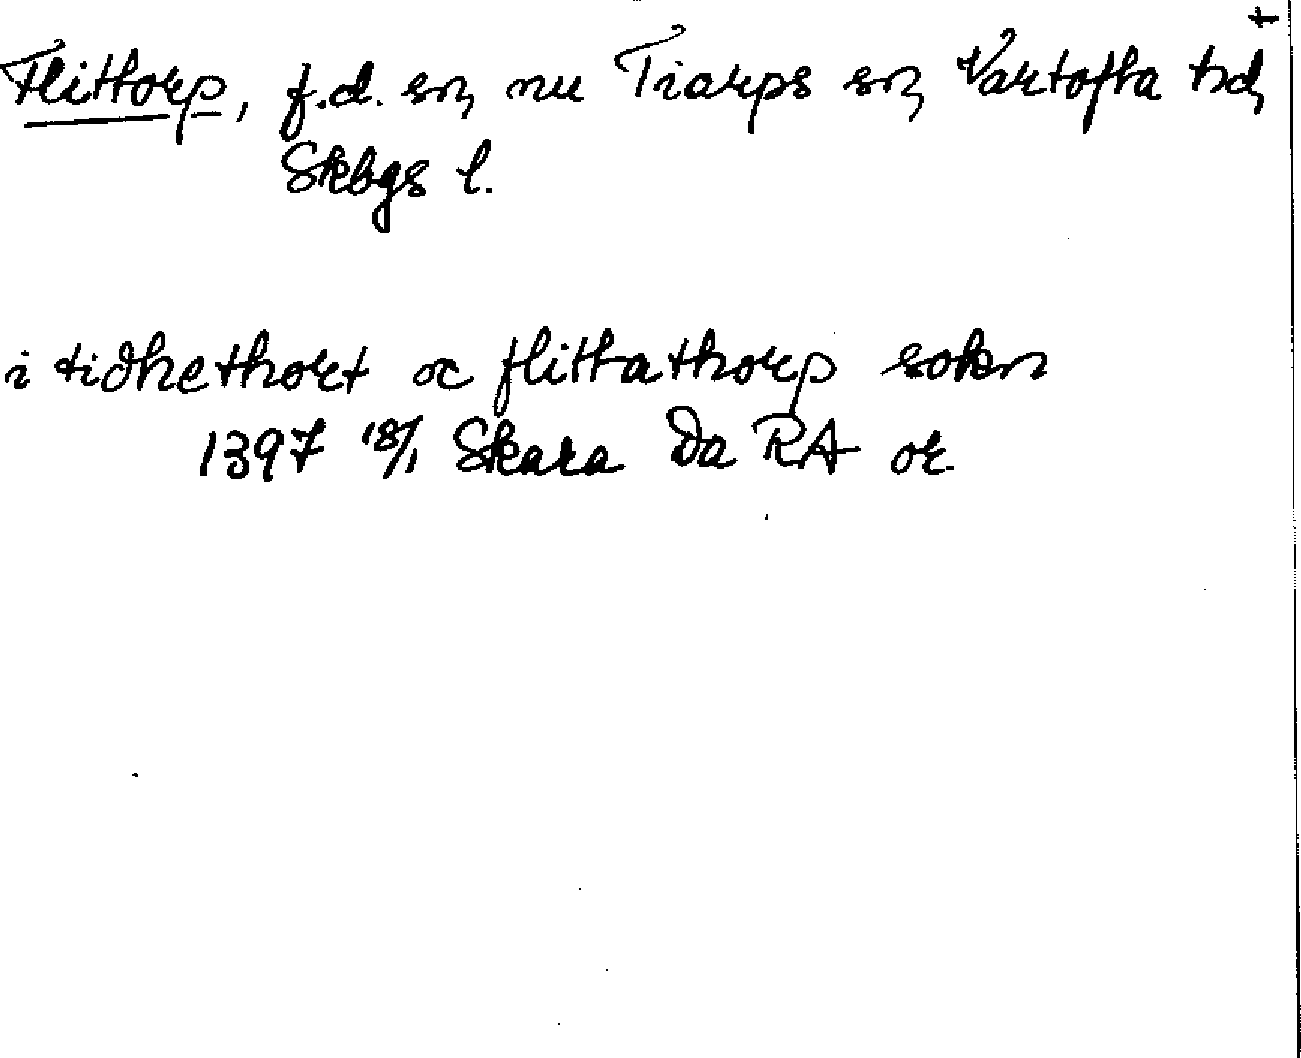 t
Flittorp, f.d. sn, nu Tiarps sn, Vartofta hd,
Skbgs l.
i tidhethort oc flittathorp sokn
1397 18/1 Skara Da RA or.